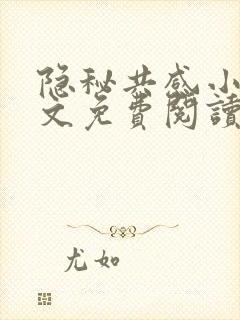 隐秘共感小
文免費閱讀
尤如